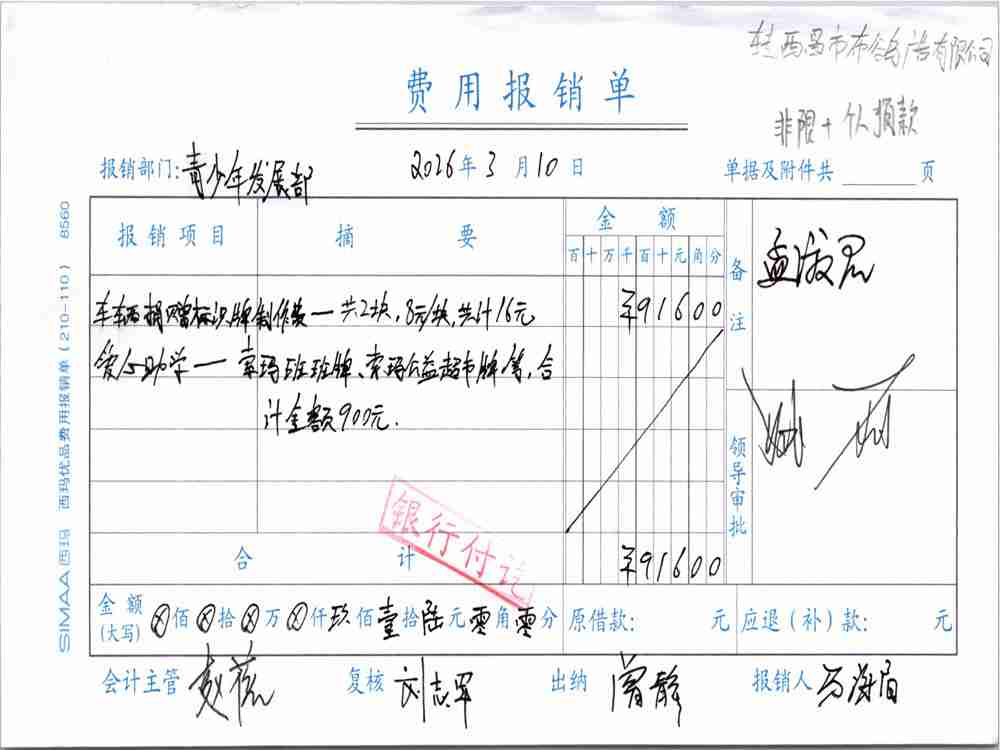 转西昌市布谷鸟广告有限公司
费用报销单
非限+个人捐款
报销部门:青少年发展部 2026年3月10日 单据及附件共 页
报销项目 摘要 金额 备注
百十万千百十元角分
孟淑君
车辆捐赠标识牌制作费一共2块,8元/块,共计16元 ¥91600
爱心助学一索玛班班牌、索玛公益超市牌等,合
计金额900元.
领导审批
银行付讫
合计 ¥91600
金额(大写) ⊗佰⊗拾⊗万⊗仟玖佰壹拾陆元零角零分 原借款: 元 应退(补)款: 元
会计主管 复核 刘志军 出纳 曾静 报销人
SIMAA西玛 西玛优品费用报销单(210-110) 8560